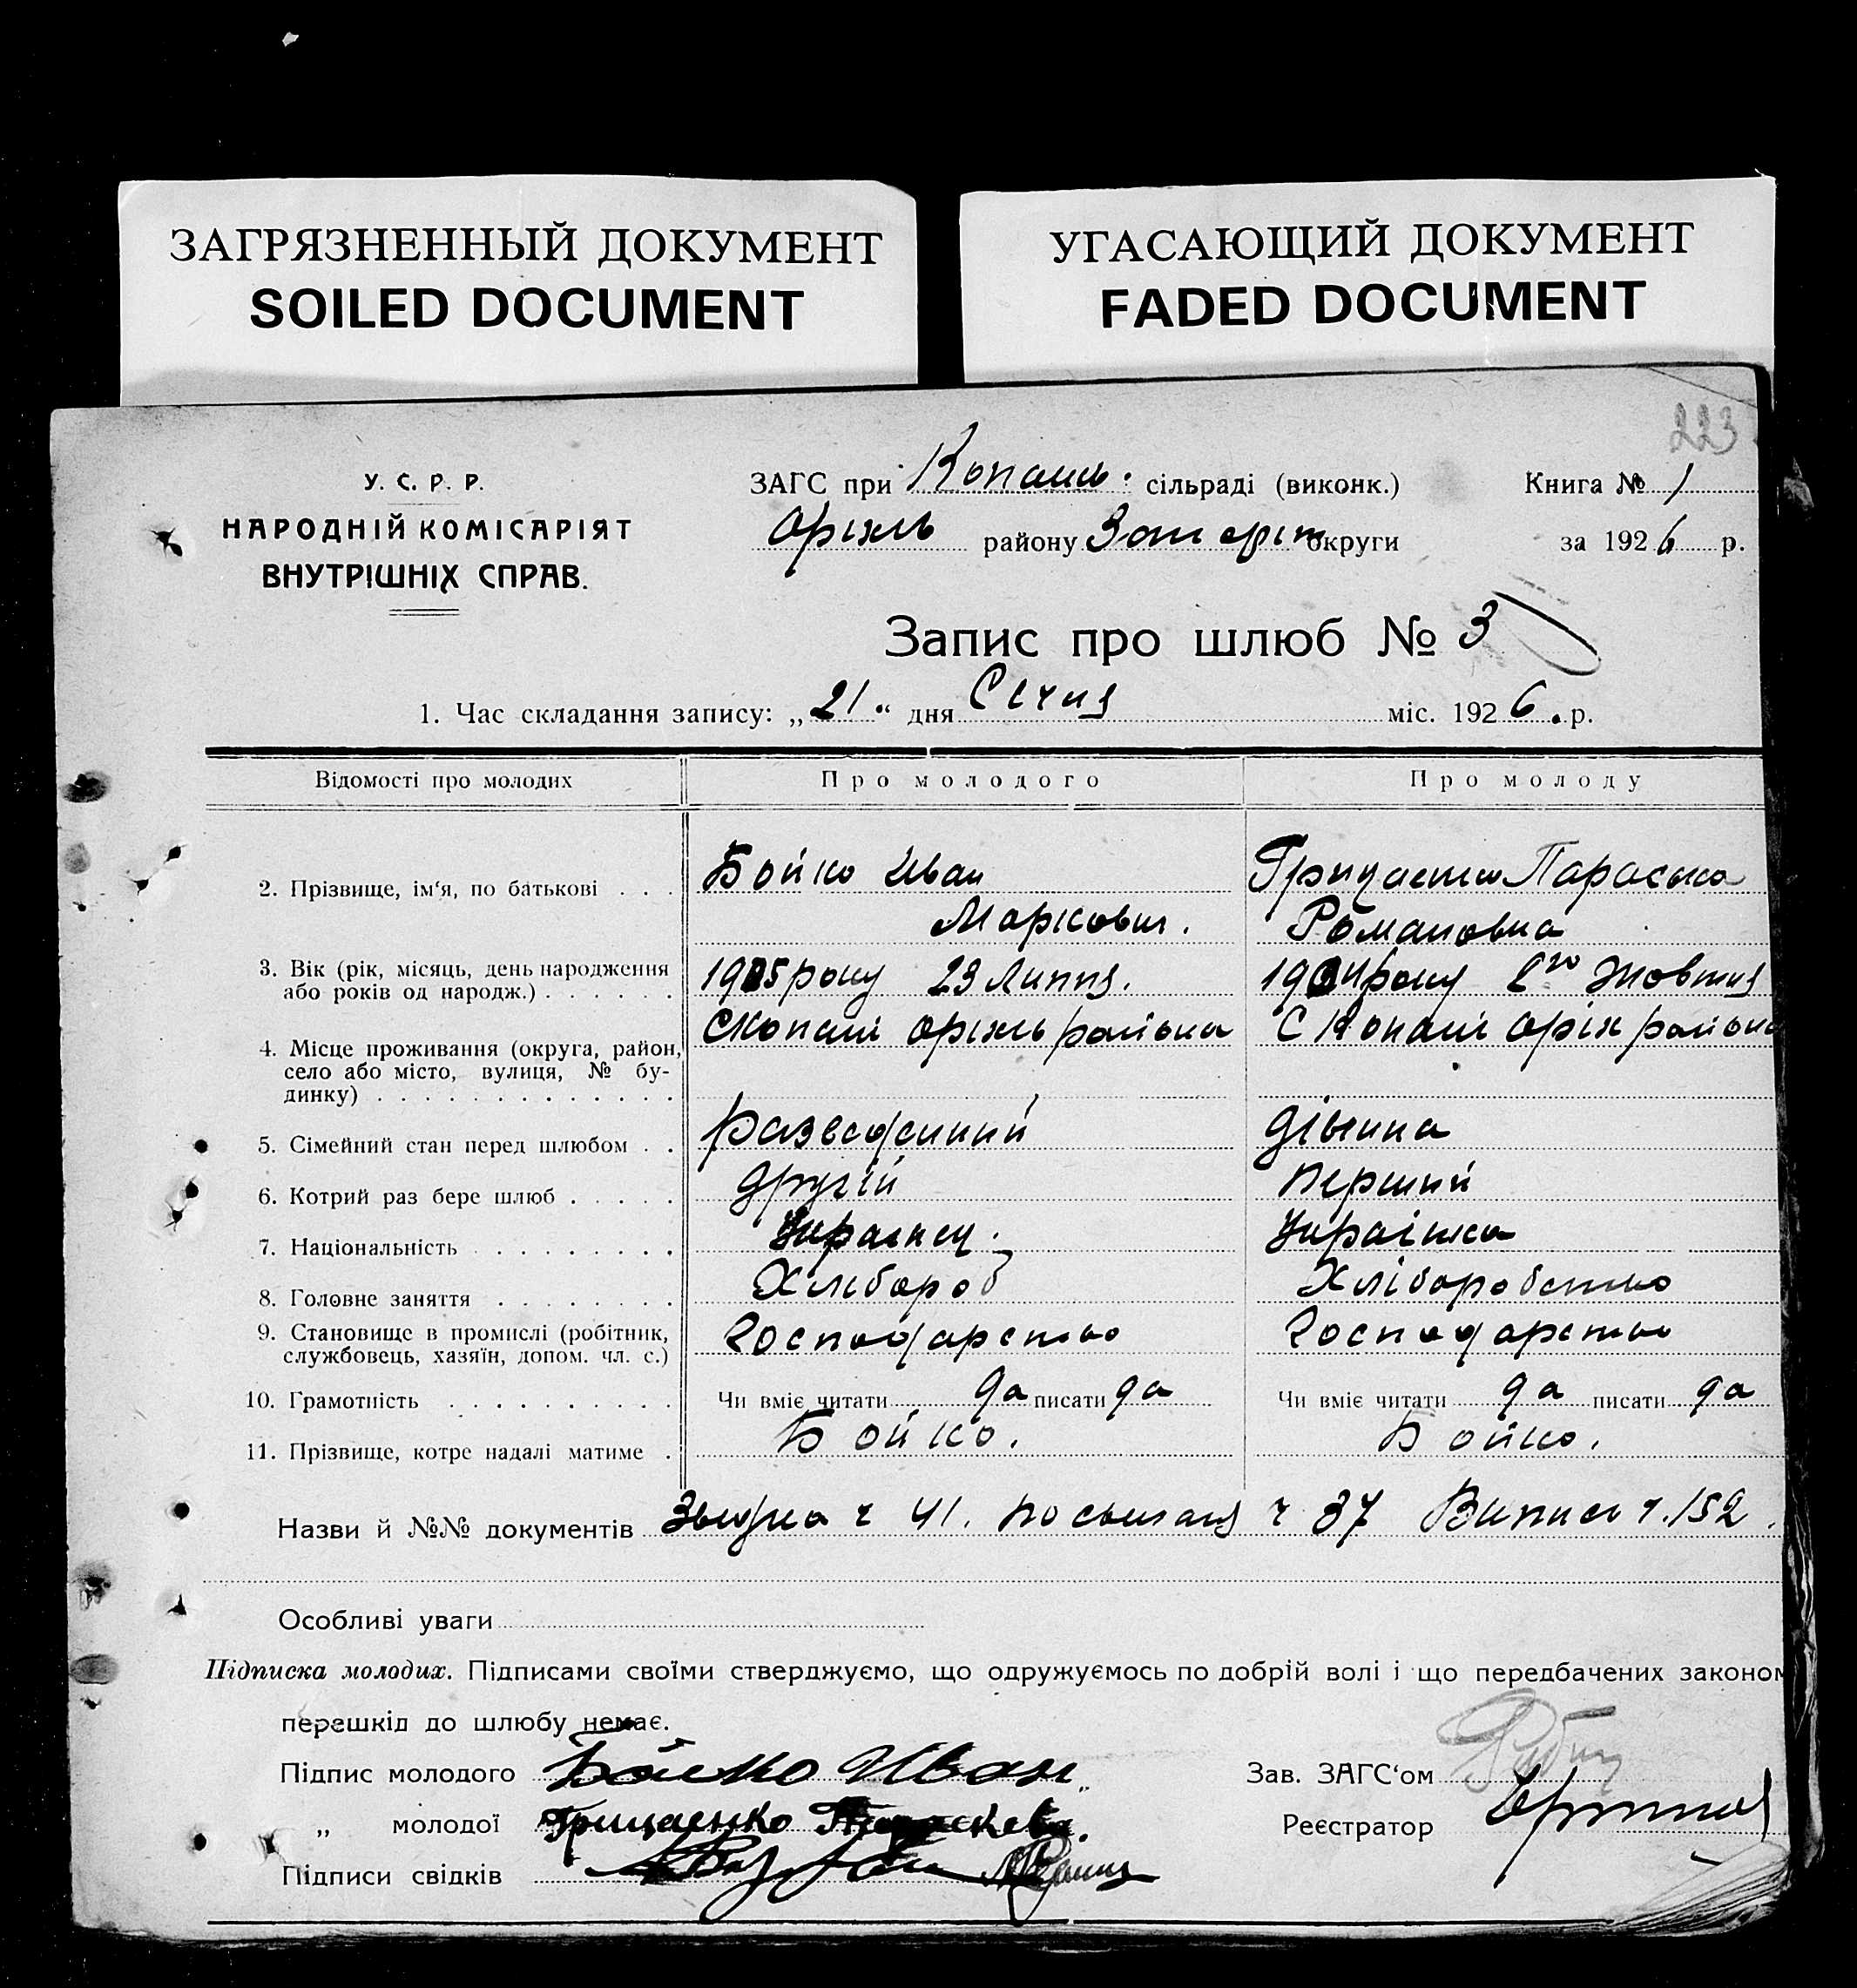 ЗАГРЯЗНЕННЫЙ ДОКУМЕНТ
SOILED DOCUMENT
УГАСАЮЩИЙ ДОКУМЕНТ
FADED DOCUMENT
223
У. С. Р. Р.
НАРОДНІЙ КОМІСАРІЯТ
ВНУТРІШНІХ СПРАВ.
ЗАГС при Копань. сільраді (виконк.) Книга № 1
Оріхів району округи за 1926 р.
Запис про шлюб № 3
1. Час складання запису: „21“ дня Січня міс. 1926. р.
Відомості про молодих Про молодого Про молоду
2. Прізвище, ім'я, по батькові . . . Бойко Иван Грицаенко Параска
Маркович. Романовна
3. Вік (рік, місяць, день народження 1905 року 23 Липня. 1904 року 2го Жовтня
або років од народж.) . . . . . .
С Копані Оріхів района С Копані Оріх района
4. Місце проживання (округа, район,
село або місто, вулиця, № бу-
динку) . . . . . . . . . . . . .
5. Сімейний стан перед шлюбом . . Разведенний Дівчина
6. Котрий раз бере шлюб . . . . . Другій Перший
7. Національність . . . . . . . . . Украінец. Украінка
8. Головне заняття . . . . . . . . Хлібороб Хліборобство
9. Становище в промислі (робітник, Господарство Господарство
службовець, хазяїн, допом. чл. с.)
10. Грамотність . . . . . . . . . . Чи вміє читати да писати да Чи вміє читати да писати да
11. Прізвище, котре надалі матиме . Бойко. Бойко.
Назви й №№ документів ч 41. ч 37 Випись ч. 152.
Особливі уваги
Підписка молодих. Підписами своїми стверджуємо, що одружуємось по добрій волі і що передбачених законом
перешкід до шлюбу немає.
Підпис молодого Бойко Иван Зав. ЗАГС'ом
„ молодої Грицаенко Реєстратор
Підписи свідків